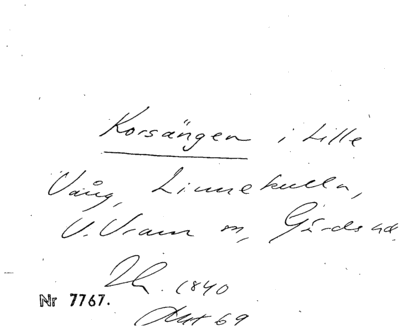 Korsängen i Lille
Vång, Linnekulla,
V. Vram m, Gårds hd.
1840
Nr 7767.
Akt 69